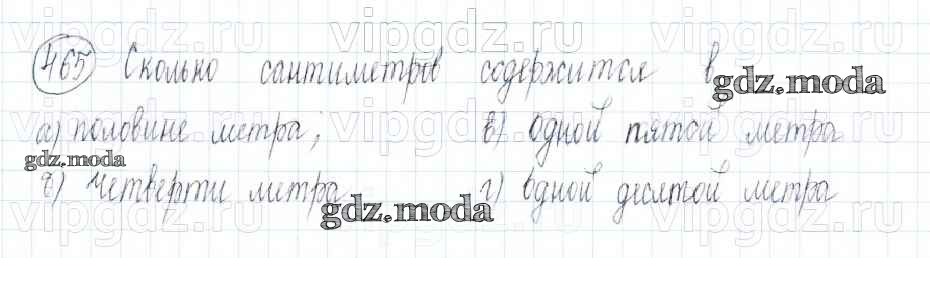 vipgdz.ru vipgdz.ru vipgdz.ru
465 Сколько сантиметров содержится в
gdz.moda
а) половине метра; в) одной пятой метра
vipgdz.ru vipgdz.ru vipgdz.ru
gdz.moda
б) четверти метра г) одной десятой метра
gdz.moda
vipgdz.ru vipgdz.ru vipgdz.ru